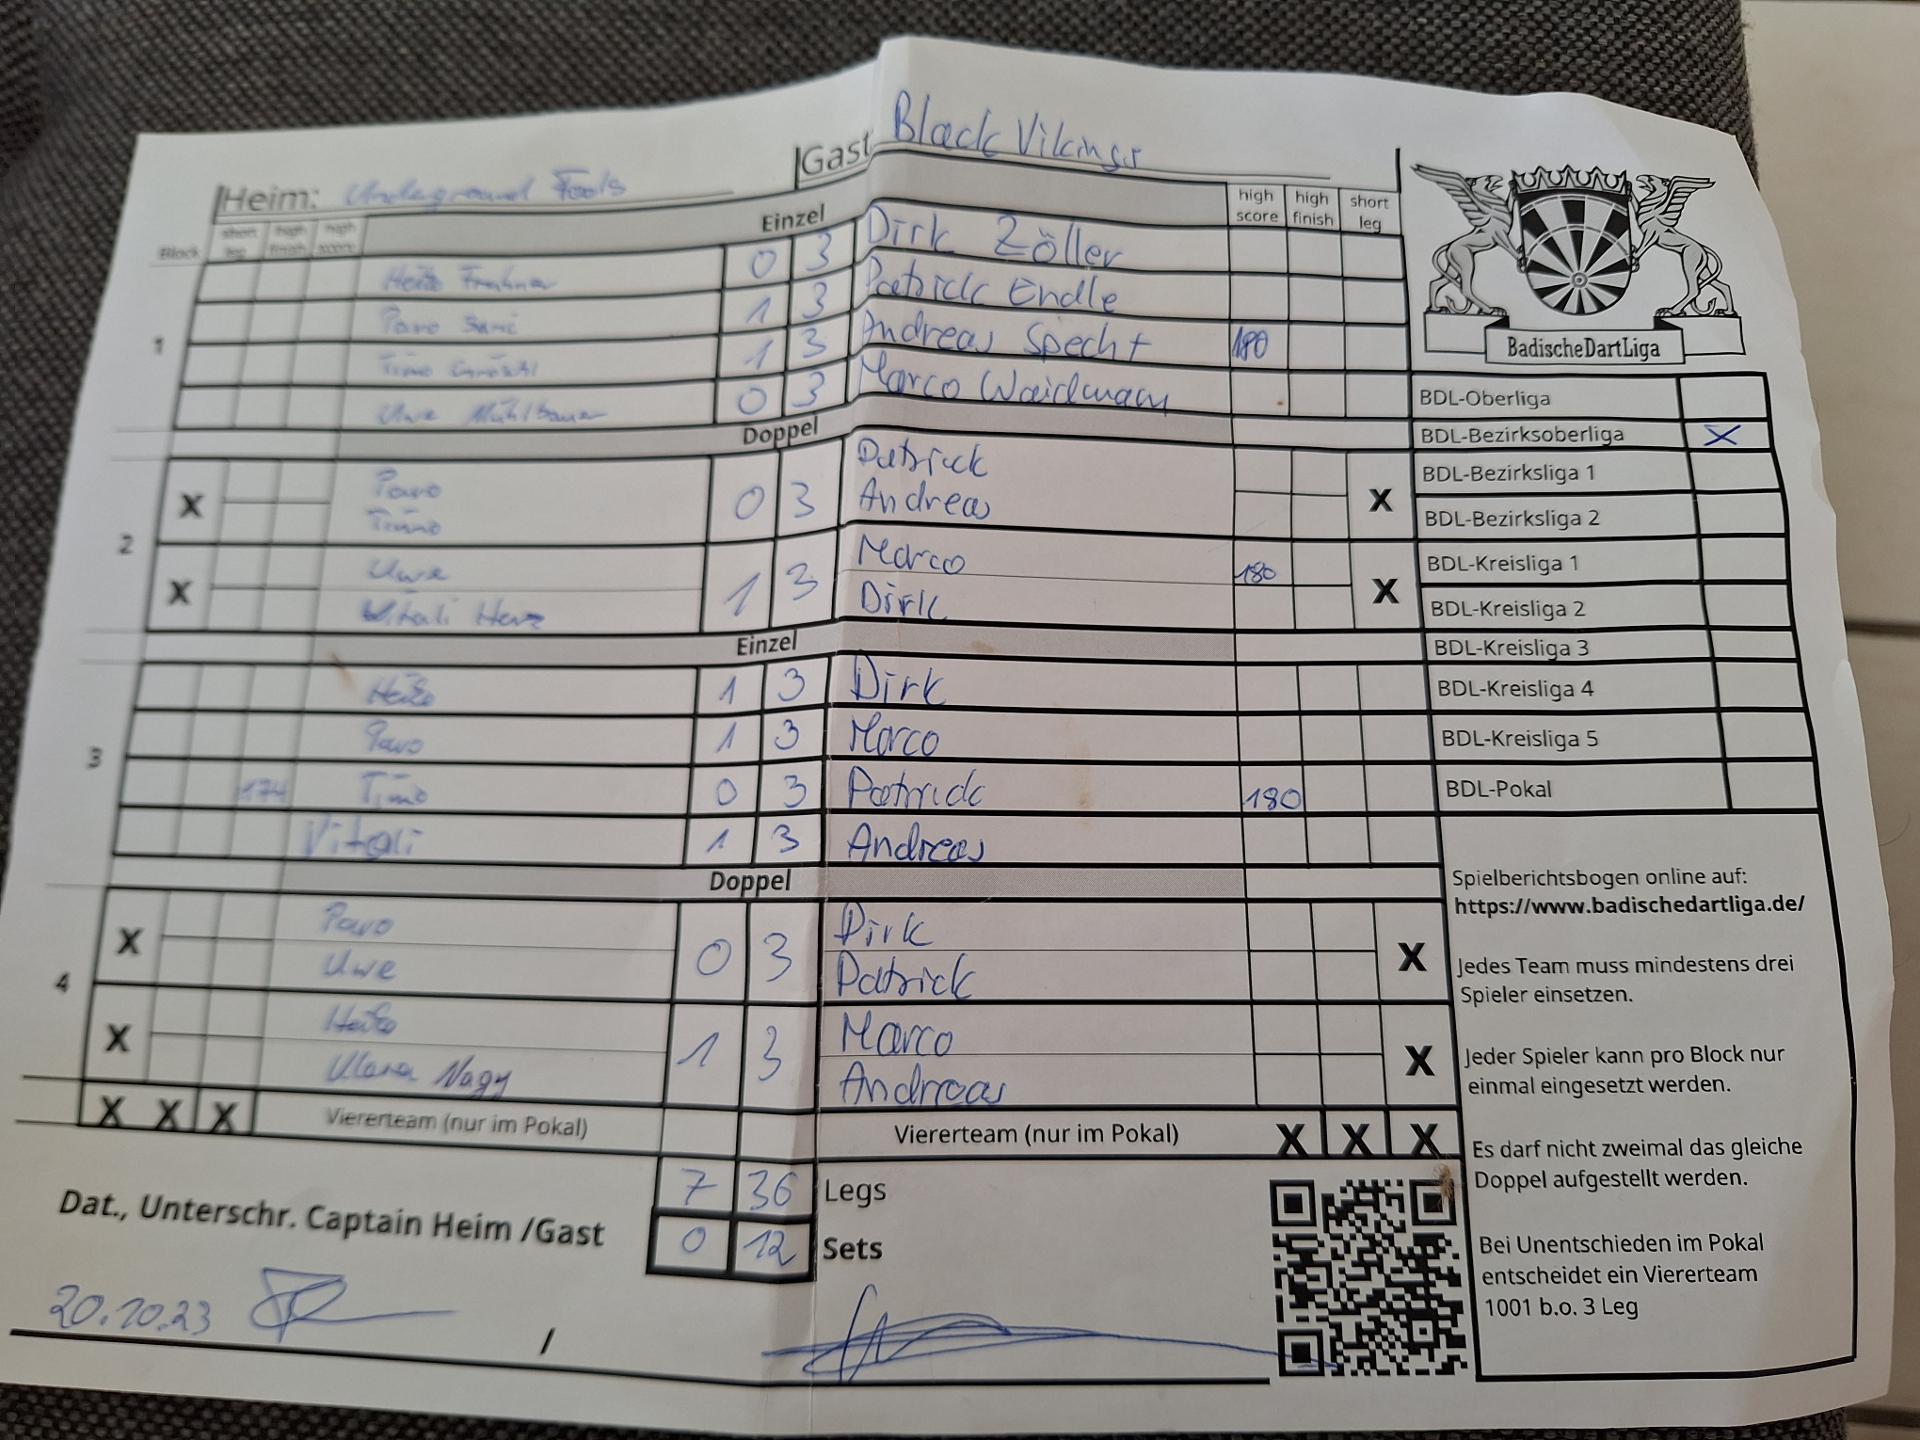 Heim: Underground Fools
Gast Black Vikings
Block short leg high finish high score Einzel high score high finish short leg
1
Heiko 0 3 Dirk Zöller
Pavo 1 3 Patrick Endle
Timo 1 3 Andreas Specht 180
Uwe Mühlbauer 0 3 Marco Waidmann
Doppel
2
X Pavo 0 3 Patrick X
Timo Andreas
X Uwe 1 3 Marco 180 X
Vitali Herz Dirk
Einzel
3
Heiko 1 3 Dirk
Pavo 1 3 Marco
174 Timo 0 3 Patrick 180
Vitali 1 3 Andreas
Doppel
4
X Pavo 0 3 Dirk X
Uwe Patrick
X Heiko 1 3 Marco X
Nagy Andreas
X X X Viererteam (nur im Pokal) Viererteam (nur im Pokal) X X X
7 36 Legs
0 12 Sets
Dat., Unterschr. Captain Heim /Gast
20.10.23 /
BadischeDartLiga
BDL-Oberliga
BDL-Bezirksoberliga X
BDL-Bezirksliga 1
BDL-Bezirksliga 2
BDL-Kreisliga 1
BDL-Kreisliga 2
BDL-Kreisliga 3
BDL-Kreisliga 4
BDL-Kreisliga 5
BDL-Pokal
Spielberichtsbogen online auf:
https://www.badischedartliga.de/
Jedes Team muss mindestens drei
Spieler einsetzen.
Jeder Spieler kann pro Block nur
einmal eingesetzt werden.
Es darf nicht zweimal das gleiche
Doppel aufgestellt werden.
Bei Unentschieden im Pokal
entscheidet ein Viererteam
1001 b.o. 3 Leg